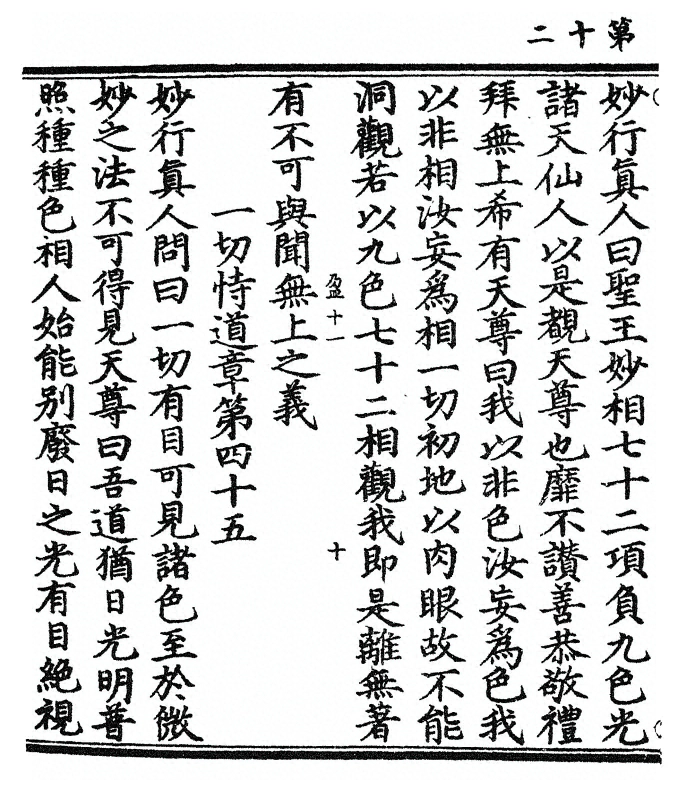 第十二
妙行眞人曰聖王妙相七十二項負九色光
諸天仙人以是覩天尊也靡不讃善恭敬禮
拜無上希有天尊曰我以非色汝妄爲色我
以非相汝妄爲相一切初地以肉眼故不能
洞觀若以九色七十二相觀我即是離無著
盈十一
十
有不可與聞無上之義
一切恃道章第四十五
妙行眞人問曰一切有目可見諸色至於微
妙之法不可得見天尊曰吾道猶日光明普
照種種色相人始能別廢日之光有目絶視